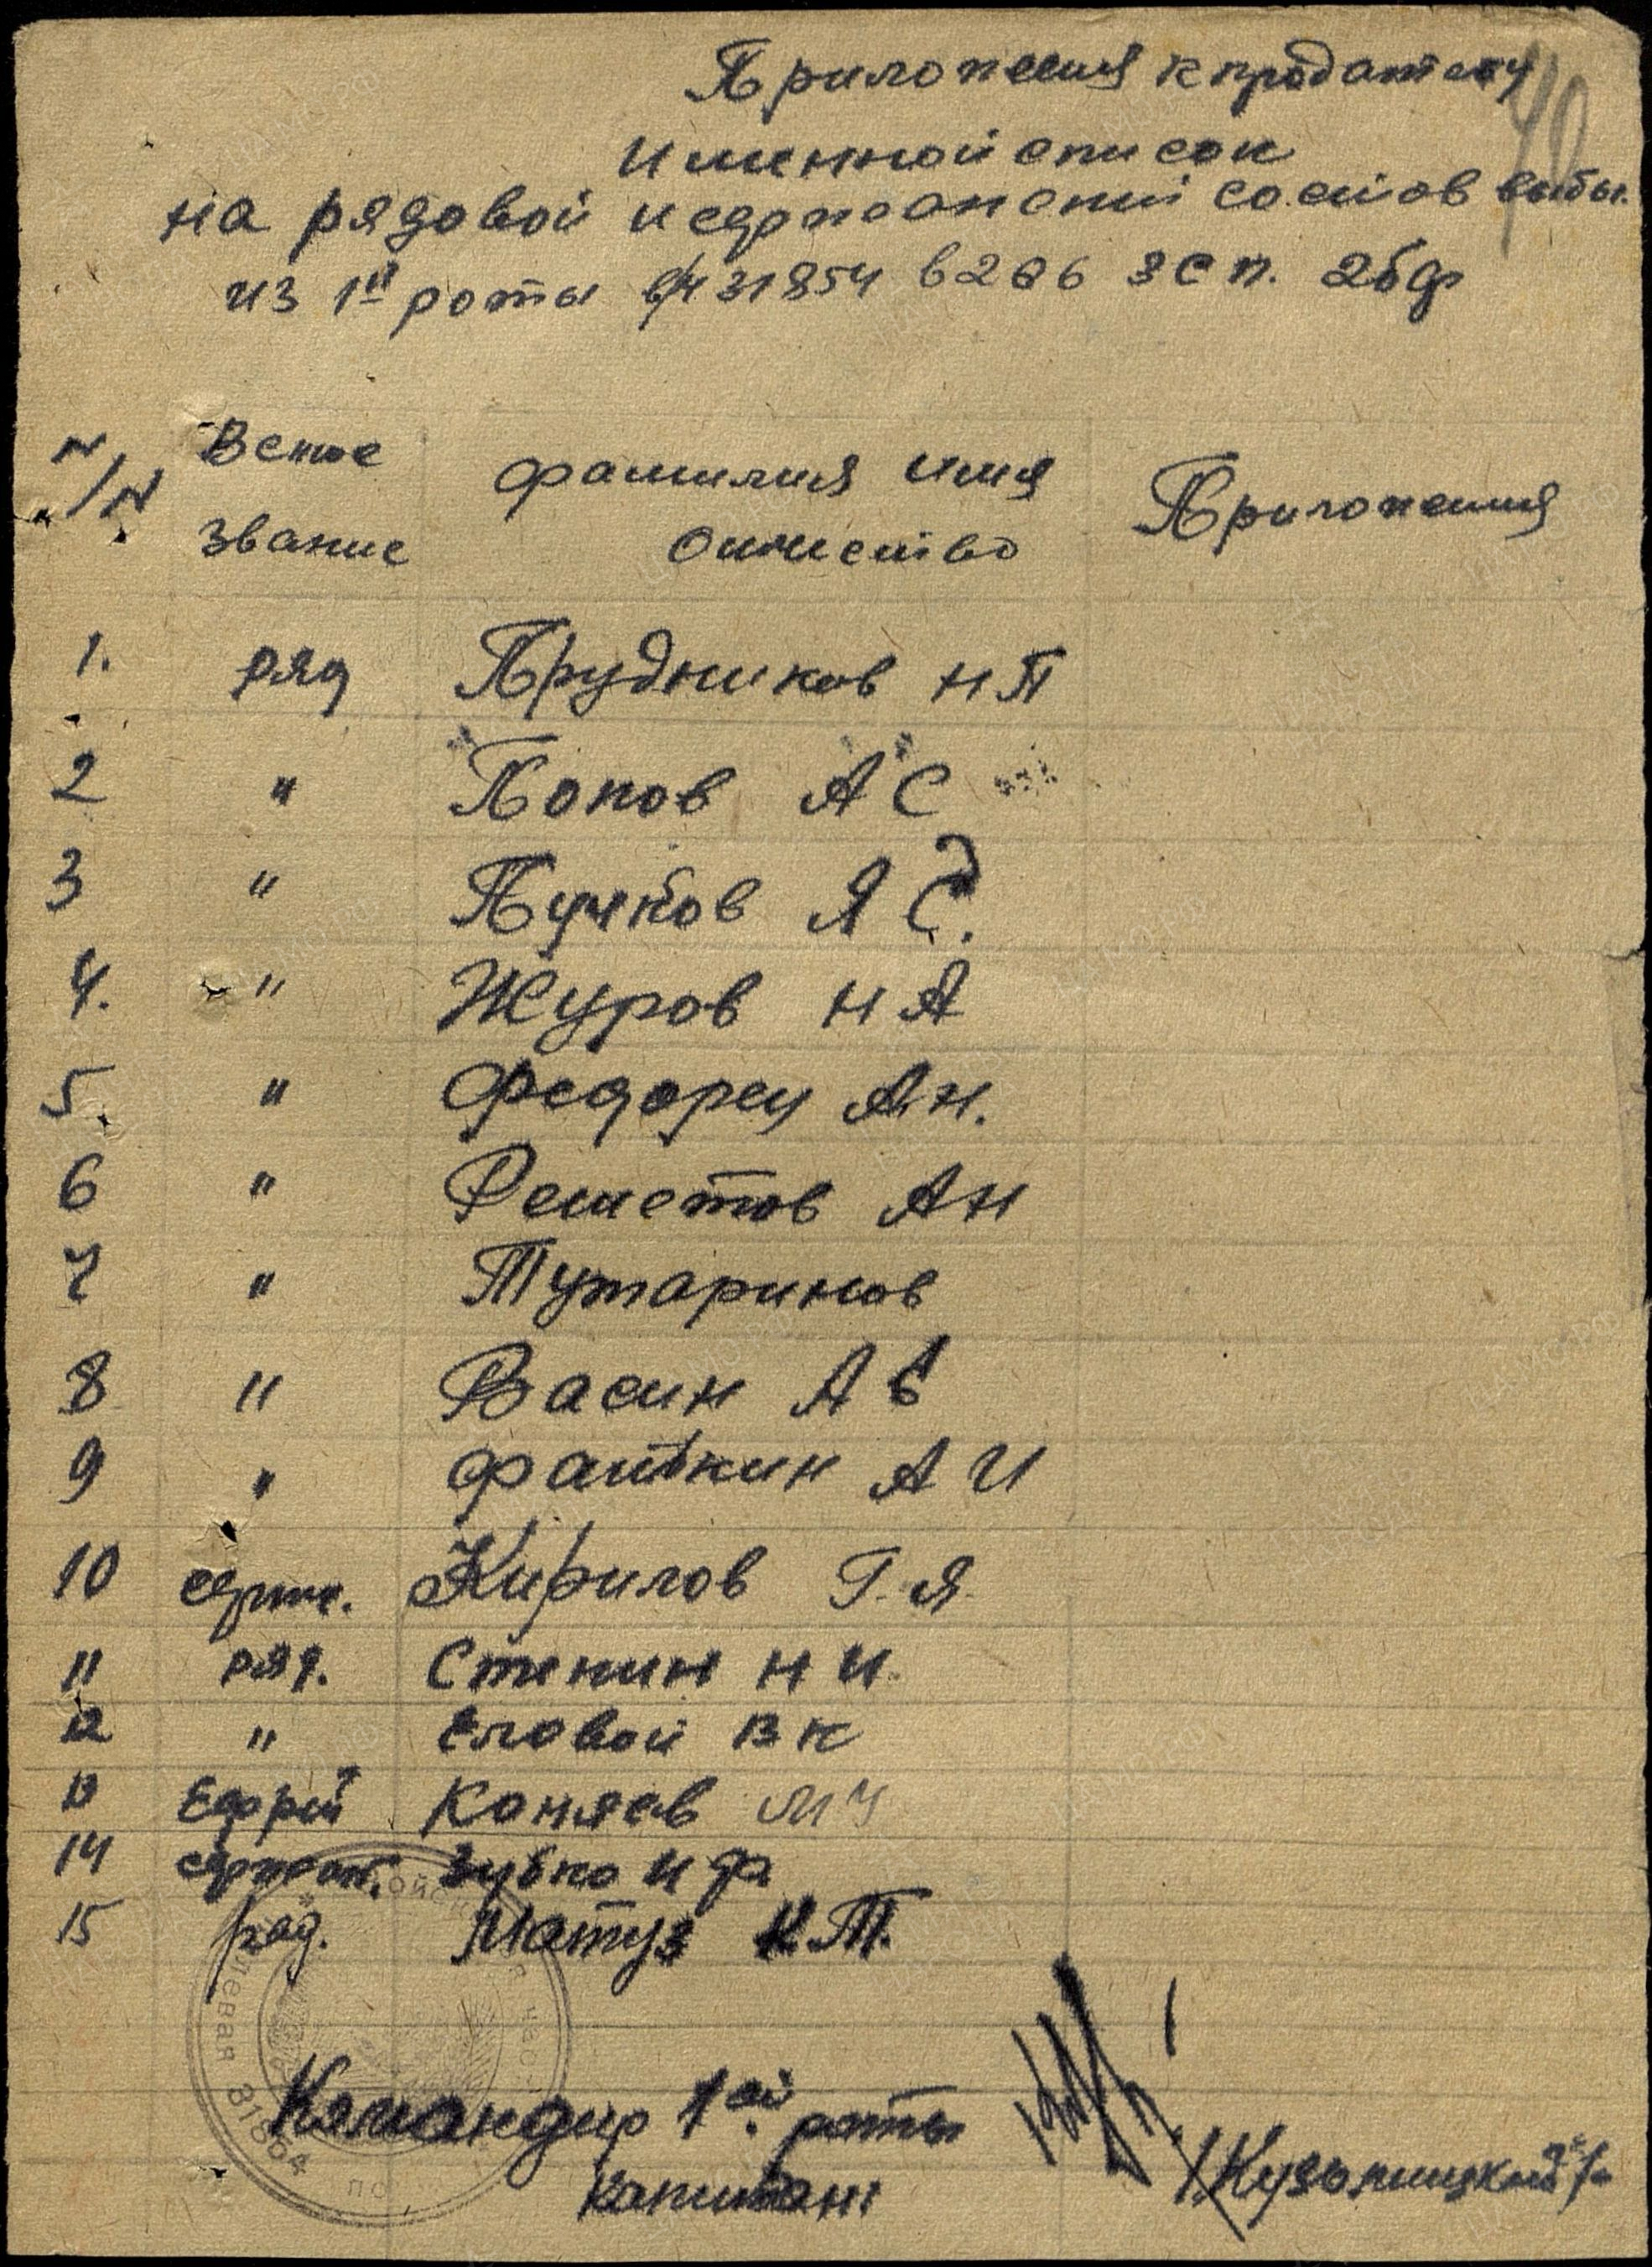 Приложения к продатесту
Именной список
на рядовой и сержанский состав выбы.
из 1й роты в/ч 31854 в 286 зсп. 2бф
N/N
Вское
Звание
Фамилия имя
Отчество
Приложения
1. ряд Прудников Н П
2 " Попов А С
3 " Пучков Я С.
4. " Журов Н А
5. " Федорец А.Н.
6 " Решетов А Н
7 " Тутаринов
8 " Васин А В
9 " Файкин А И
10 серж. Кирилов Г.Я.
11 ряд. Стинин Н И.
12 " Еловой В К
13 Ефрей Коняев М Ч
14 сержант. Зубко И Ф
15 ряд. Матуз К.Т.
Командир 1ой роты
Капитан
/Кузьмицкий/